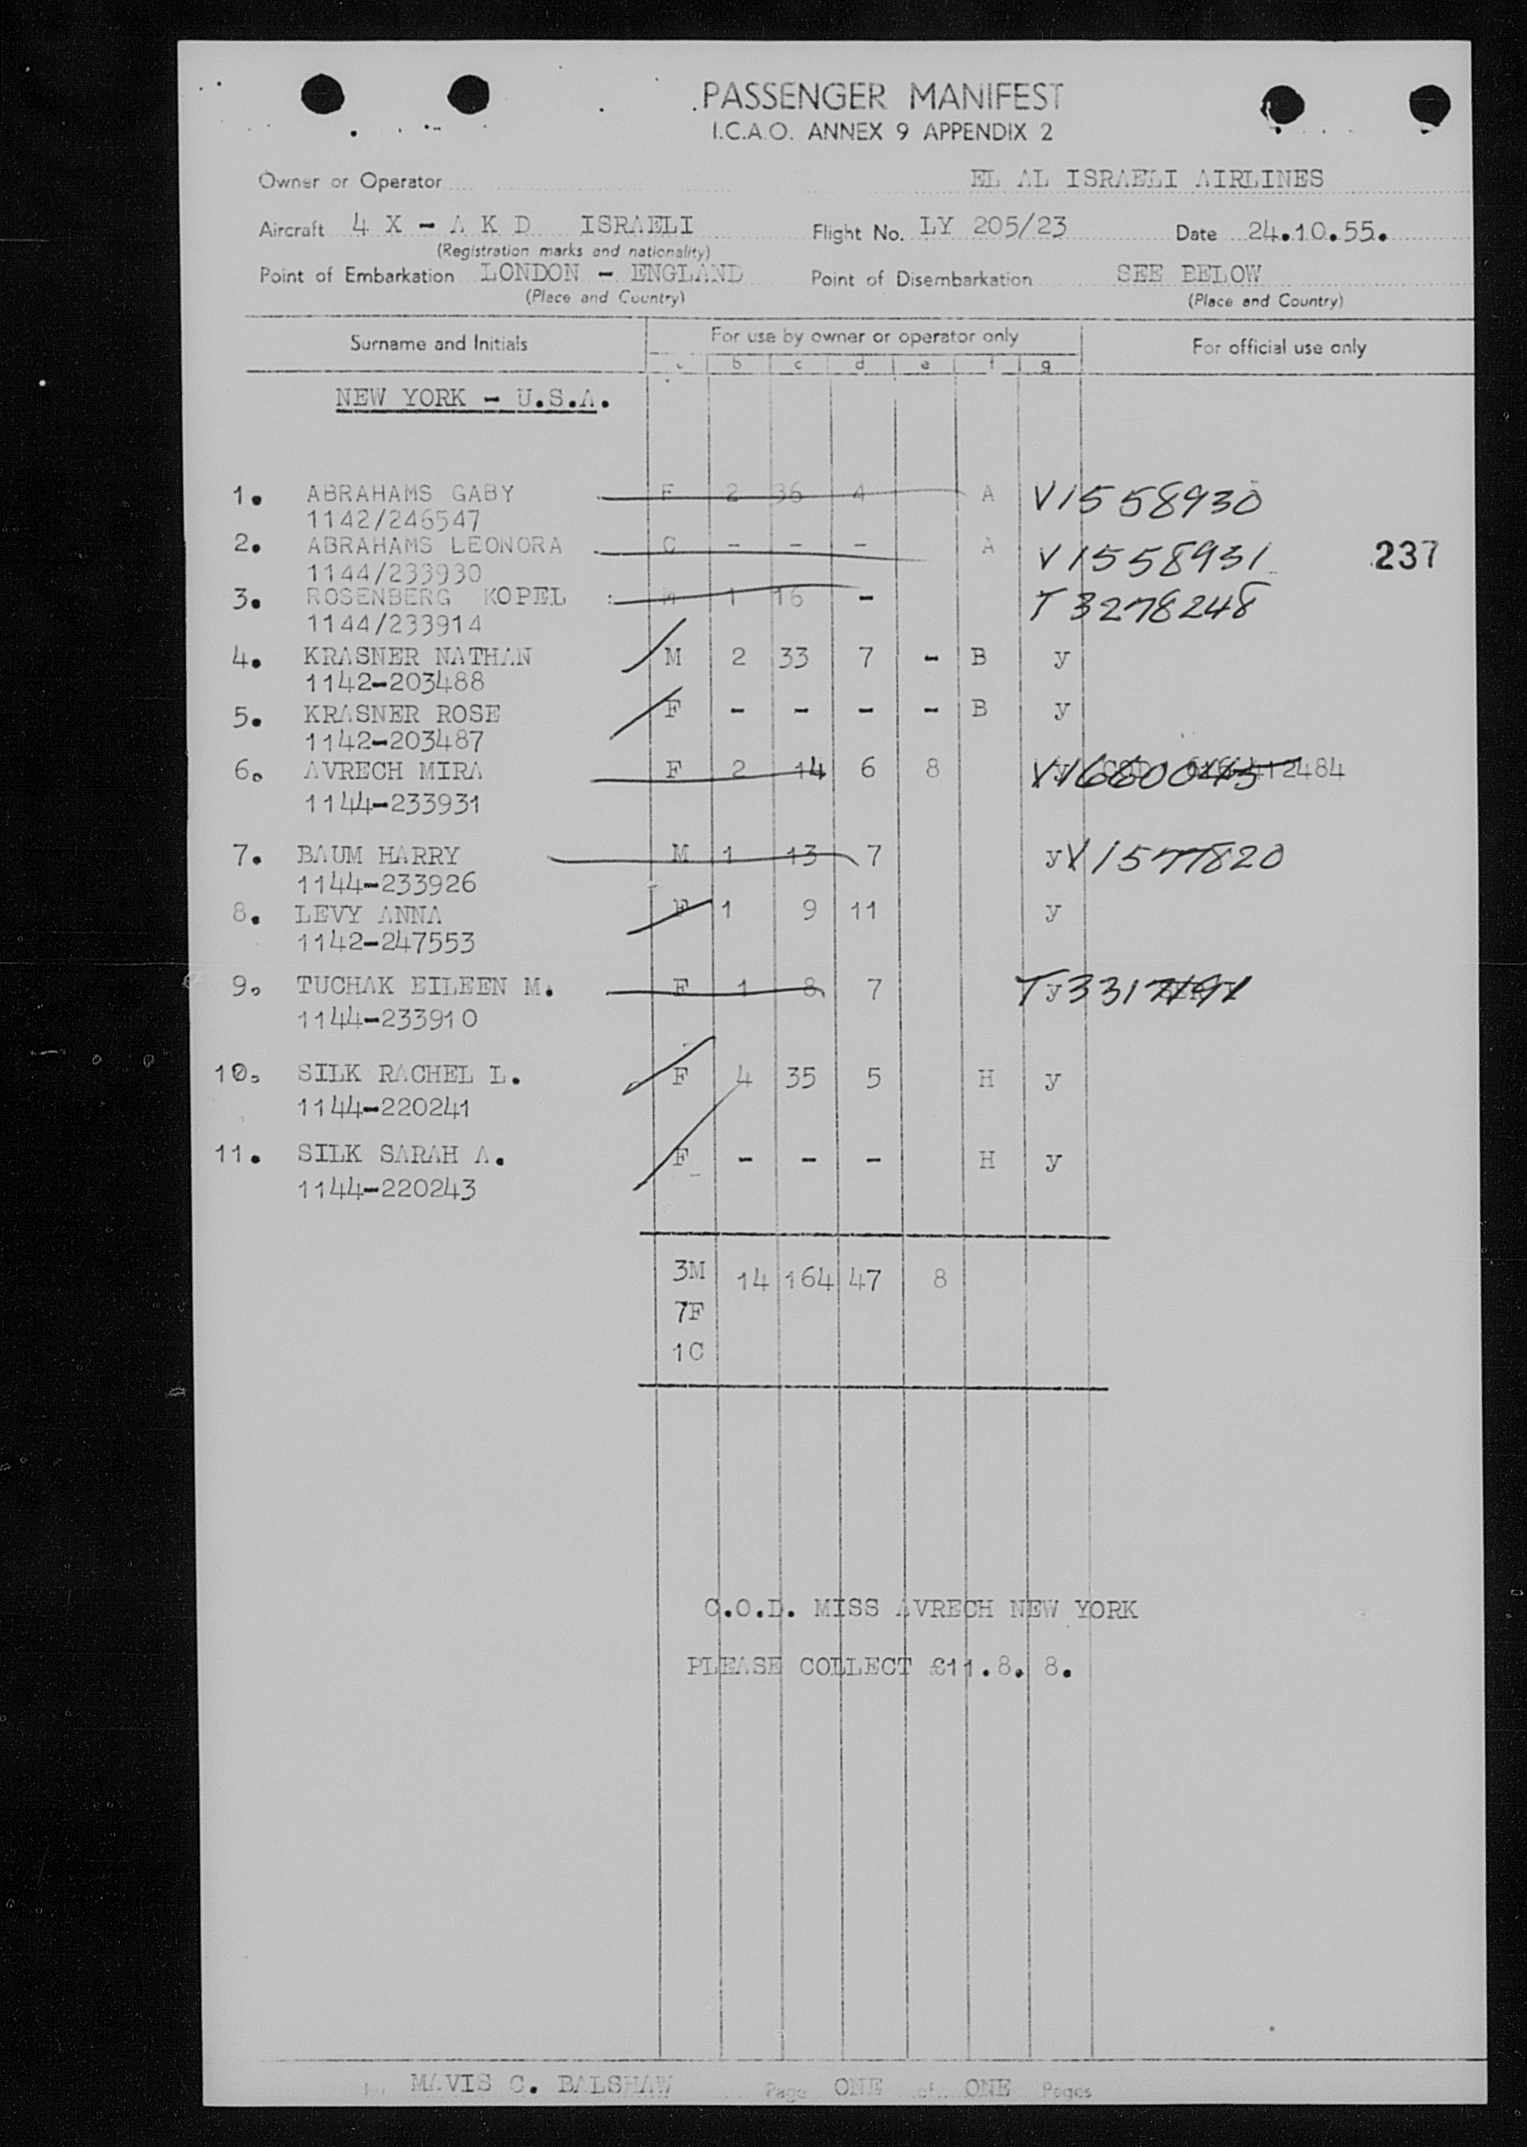 PASSENGER MANIFEST
I.C.A.O. ANNEX 9 APPENDIX 2
Owner or Operator EL AL ISRAELI AIRLINES
Aircraft 4 X - A K D ISRAELI Flight No. LY 205/23 Date 24.10.55.
(Registration marks and nationality)
Point of Embarkation LONDON - ENGLAND Point of Disembarkation SEE BELOW
(Place and Country) (Place and Country)
Surname and Initials For use by owner or operator only For official use only
b c d e f g
NEW YORK - U.S.A.
1. ABRAHAMS GABY F 2 36 4 A V1558930
1142/246547
2. ABRAHAMS LEONORA C - - - A V1558931 237
1144/233930
3. ROSENBERG KOPEL M 1 16 - T3278248
1144/233914
4. KRASNER NATHAN M 2 33 7 - B y
1142-203488
5. KRASNER ROSE F - - - - B y
1142-203487
6. AVRECH MIRA F 2 14 6 8 y V1680045 412484
1144-233931
7. BAUM HARRY M 1 13 7 y V1577820
1144-233926
8. LEVY ANNA F 1 9 11 y
1142-247553
9. TUCHAK EILEEN M. F 1 8 7 y T3317191
1144-233910
10. SILK RACHEL L. F 4 35 5 H y
1144-220241
11. SILK SARAH A. F - - - H y
1144-220243
3M 14 164 47 8
7F
1C
C.O.D. MISS AVRECH NEW YORK
PLEASE COLLECT £11.8. 8.
MAVIS C. BALSHAW Page ONE of ONE Pages